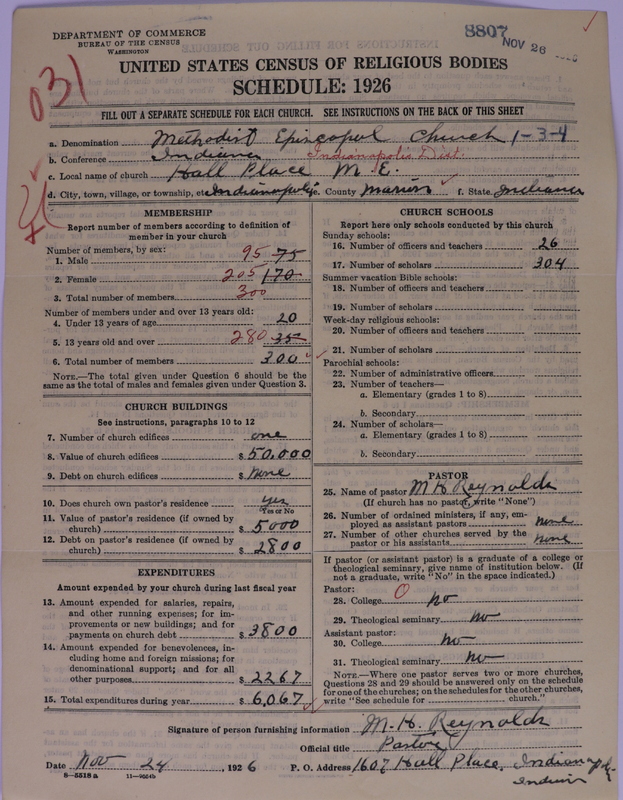 DEPARTMENT OF COMMERCE
BUREAU OF THE CENSUS
WASHINGTON
8807
NOV 26
031
UNITED STATES CENSUS OF RELIGIOUS BODIES
SCHEDULE: 1926
FILL OUT A SEPARATE SCHEDULE FOR EACH CHURCH. SEE INSTRUCTIONS ON THE BACK OF THIS SHEET
a. Denomination Methodist Episcopal Church 1-3-4
b. Conference Indiana Indianapolis Dist.
c. Local name of church Hall Place M. E.
d. City, town, village, or township, etc. Indianapolis e. County Marion f. State Indiana
MEMBERSHIP
Report number of members according to definition of
member in your church
Number of members, by sex:
1. Male 95 75
2. Female 205 170
3. Total number of members 300
Number of members under and over 13 years old:
4. Under 13 years of age 20
5. 13 years old and over 280 35
6. Total number of members 300
NOTE.—The total given under Question 6 should be
same as the total of males and females given under Question 3.
CHURCH BUILDINGS
See instructions, paragraphs 10 to 12
7. Number of church edifices one
8. Value of church edifices $ 50,000
9. Debt on church edifices $ None
10. Does church own pastor's residence yes
Yes or No
11. Value of pastor's residence (if owned by
church) $ 5000
12. Debt on pastor's residence (if owned by
church) $ 2800
EXPENDITURES
Amount expended by your church during last fiscal year
13. Amount expended for salaries, repairs,
and other running expenses; for im-
provements or new buildings; and for
payments on church debt $ 3800
14. Amount expended for benevolences, in-
cluding home and foreign missions; for
denominational support; and for all
other purposes $ 2267
15. Total expenditures during year $ 6,067
CHURCH SCHOOLS
Report here only schools conducted by this church
Sunday schools:
16. Number of officers and teachers 26
17. Number of scholars 304
Summer vacation Bible schools:
18. Number of officers and teachers
19. Number of scholars
Week-day religious schools:
20. Number of officers and teachers
21. Number of scholars
Parochial schools:
22. Number of administrative officers
23. Number of teachers—
a. Elementary (grades 1 to 8)
b. Secondary
24. Number of scholars—
a. Elementary (grades 1 to 8)
b. Secondary
PASTOR
25. Name of pastor M H Reynolds
(If church has no pastor, write "None")
26. Number of ordained ministers, if any, em-
ployed as assistant pastors none
27. Number of other churches served by the
pastor or his assistants None
If pastor (or assistant pastor) is a graduate of a college or
theological seminary, give name of institution below. (If
not a graduate, write "No" in the space indicated.)
Pastor:
28. College 0 no
29. Theological seminary no
Assistant pastor:
30. College no
31. Theological seminary no
NOTE.—Where one pastor serves two or more churches,
Questions 28 and 29 should be answered only on the schedule
for one of the churches; on the schedules for the other churches,
write "See schedule for church."
Signature of person furnishing information M. H. Reynolds
Official title Pastor
Date Nov 24, 1926 P. O. Address 1607 Hall Place, Indianapolis
Indiana
8-5518 a 11-9054b